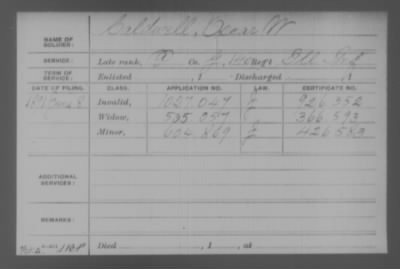 NAME OF SOLDIER: Caldwell, Oscar W
SERVICE: Late rank, Co. J, 140 Reg't Ill Inf
TERM OF SERVICE: Enlisted , 1 Discharged , 1
DATE OF FILING. CLASS. APPLICATION NO. LAW. CERTIFICATE NO.
1891 Invalid, 1027.047 J 926.352
Widow, 595.057 366.593
Minor, 604.869 J 426.583
ADDITIONAL SERVICES:
REMARKS:
Died , 1 , at